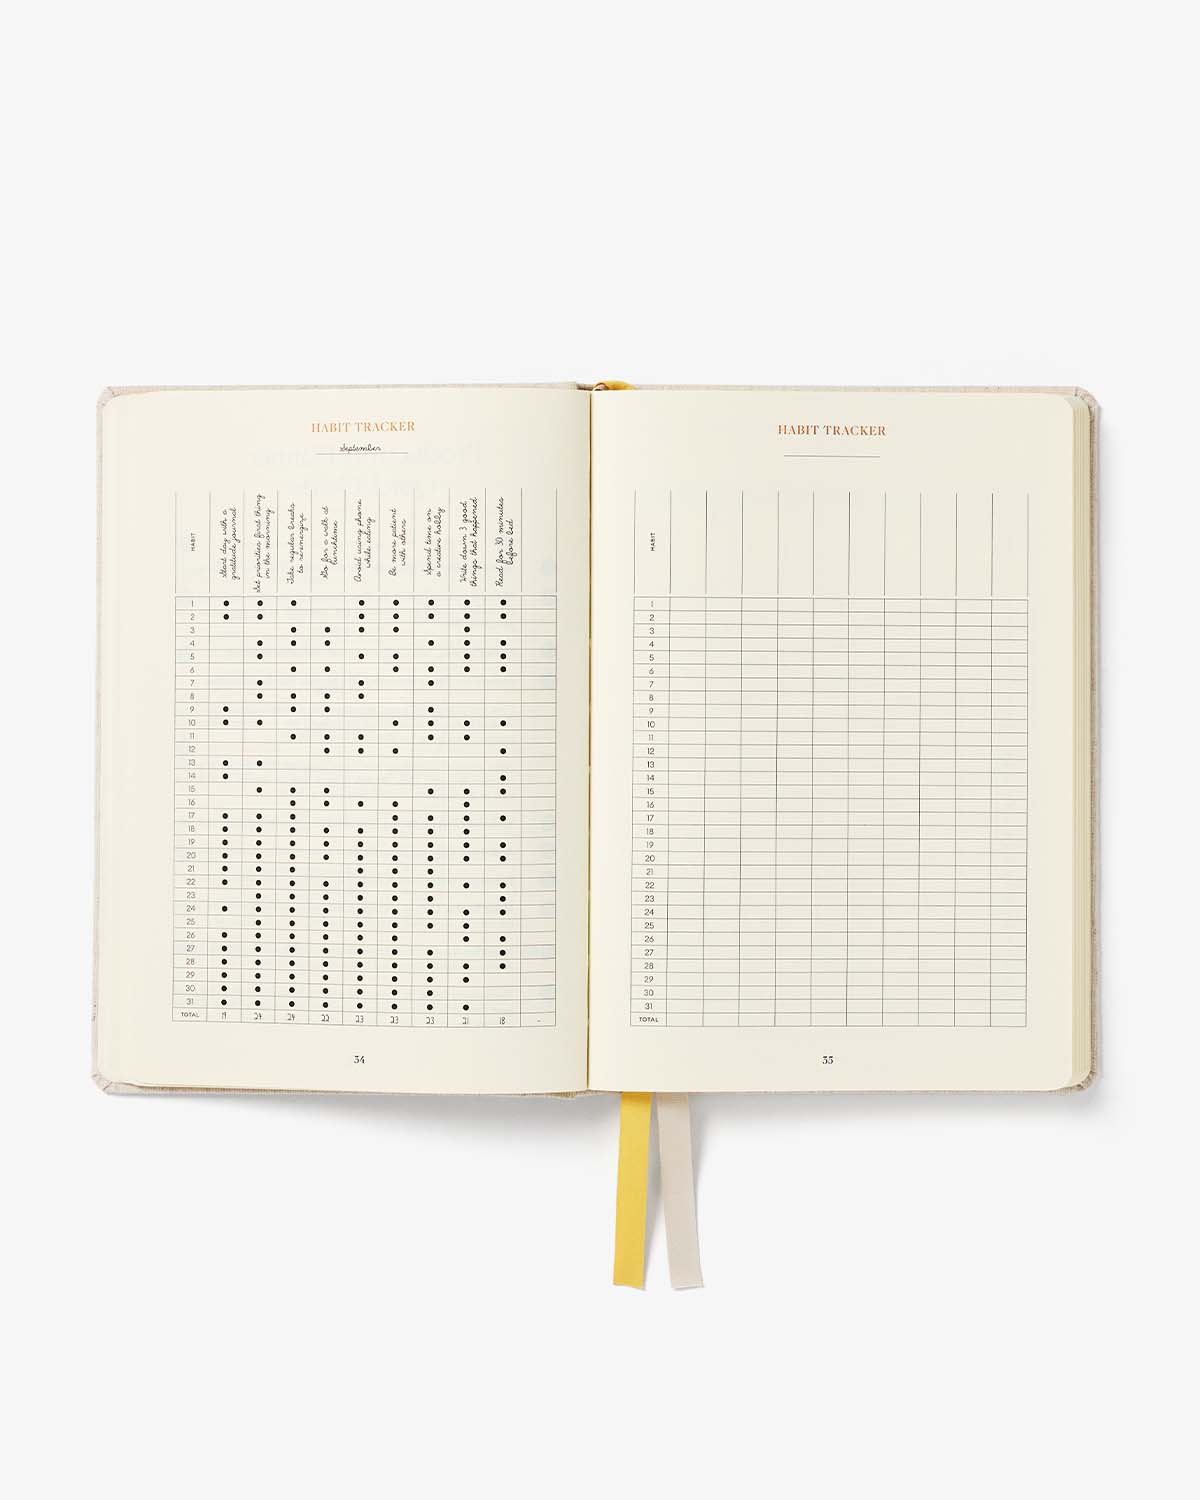 HABIT TRACKER
September
HABIT
Start day with a
gratitude journal
Set priorities first thing
in the morning
Take regular breaks
to re-energize
Go for a walk at
lunchtime
Avoid using phone
while eating
Be more patient
with others
Spend time on
a creative hobby
Write down 3 good
things that happened
Read for 30 minutes
before bed
1
2
3
4
5
6
7
8
9
10
11
12
13
14
15
16
17
18
19
20
21
22
23
24
25
26
27
28
29
30
31
TOTAL 19 24 24 22 23 23 23 21 18 -
34
HABIT TRACKER
HABIT
1
2
3
4
5
6
7
8
9
10
11
12
13
14
15
16
17
18
19
20
21
22
23
24
25
26
27
28
29
30
31
TOTAL
35